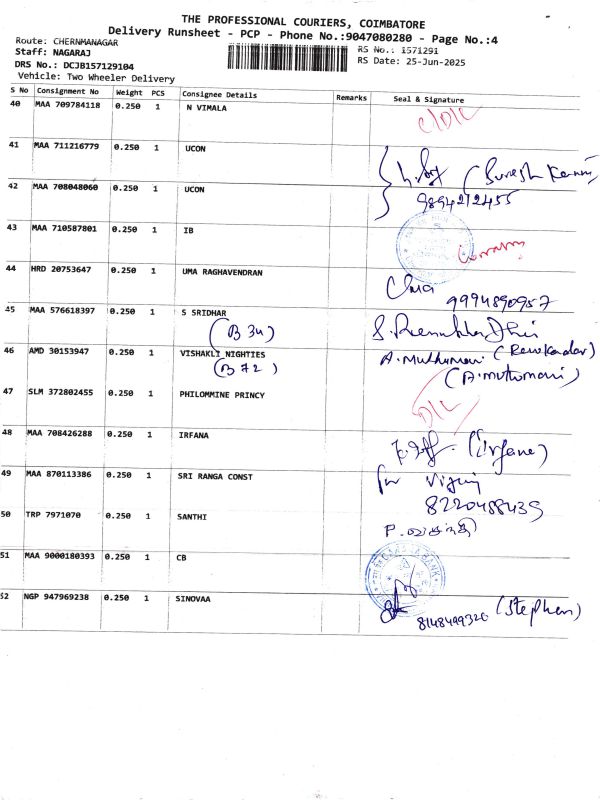 THE PROFESSIONAL COURIERS, COIMBATORE
Delivery Runsheet - PCP - Phone No.:9047080280 - Page No.:4
Route: CHERNMANAGAR
RS No.: 1571291
Staff: NAGARAJ
RS Date: 25-Jun-2025
DRS No.: DCJB157129104
Vehicle: Two Wheeler Delivery
S No Consignment No Weight PCS Consignee Details Remarks Seal & Signature
40 MAA 709784118 0.250 1 N VIMALA
41 MAA 711216779 0.250 1 UCON (Suresh Kannan)
42 MAA 708048060 0.250 1 UCON 9894212455
43 MAA 710587801 0.250 1 IB
44 HRD 20753647 0.250 1 UMA RAGHAVENDRAN Uma 9994890957
45 MAA 576618397 0.250 1 S SRIDHAR
(B 34)
46 AMD 30153947 0.250 1 VISHAKLI NIGHTIES A.Muthumari
(B 72) (A.muthumari)
47 SLM 372802455 0.250 1 PHILOMMINE PRINCY D/L
48 MAA 708426288 0.250 1 IRFANA (Irfane)
49 MAA 870113386 0.250 1 SRI RANGA CONST for
8220488439
50 TRP 7971070 0.250 1 SANTHI
51 MAA 9000180393 0.250 1 CB
52 NGP 947969238 0.250 1 SINOVAA 8148499320 (Stephen)